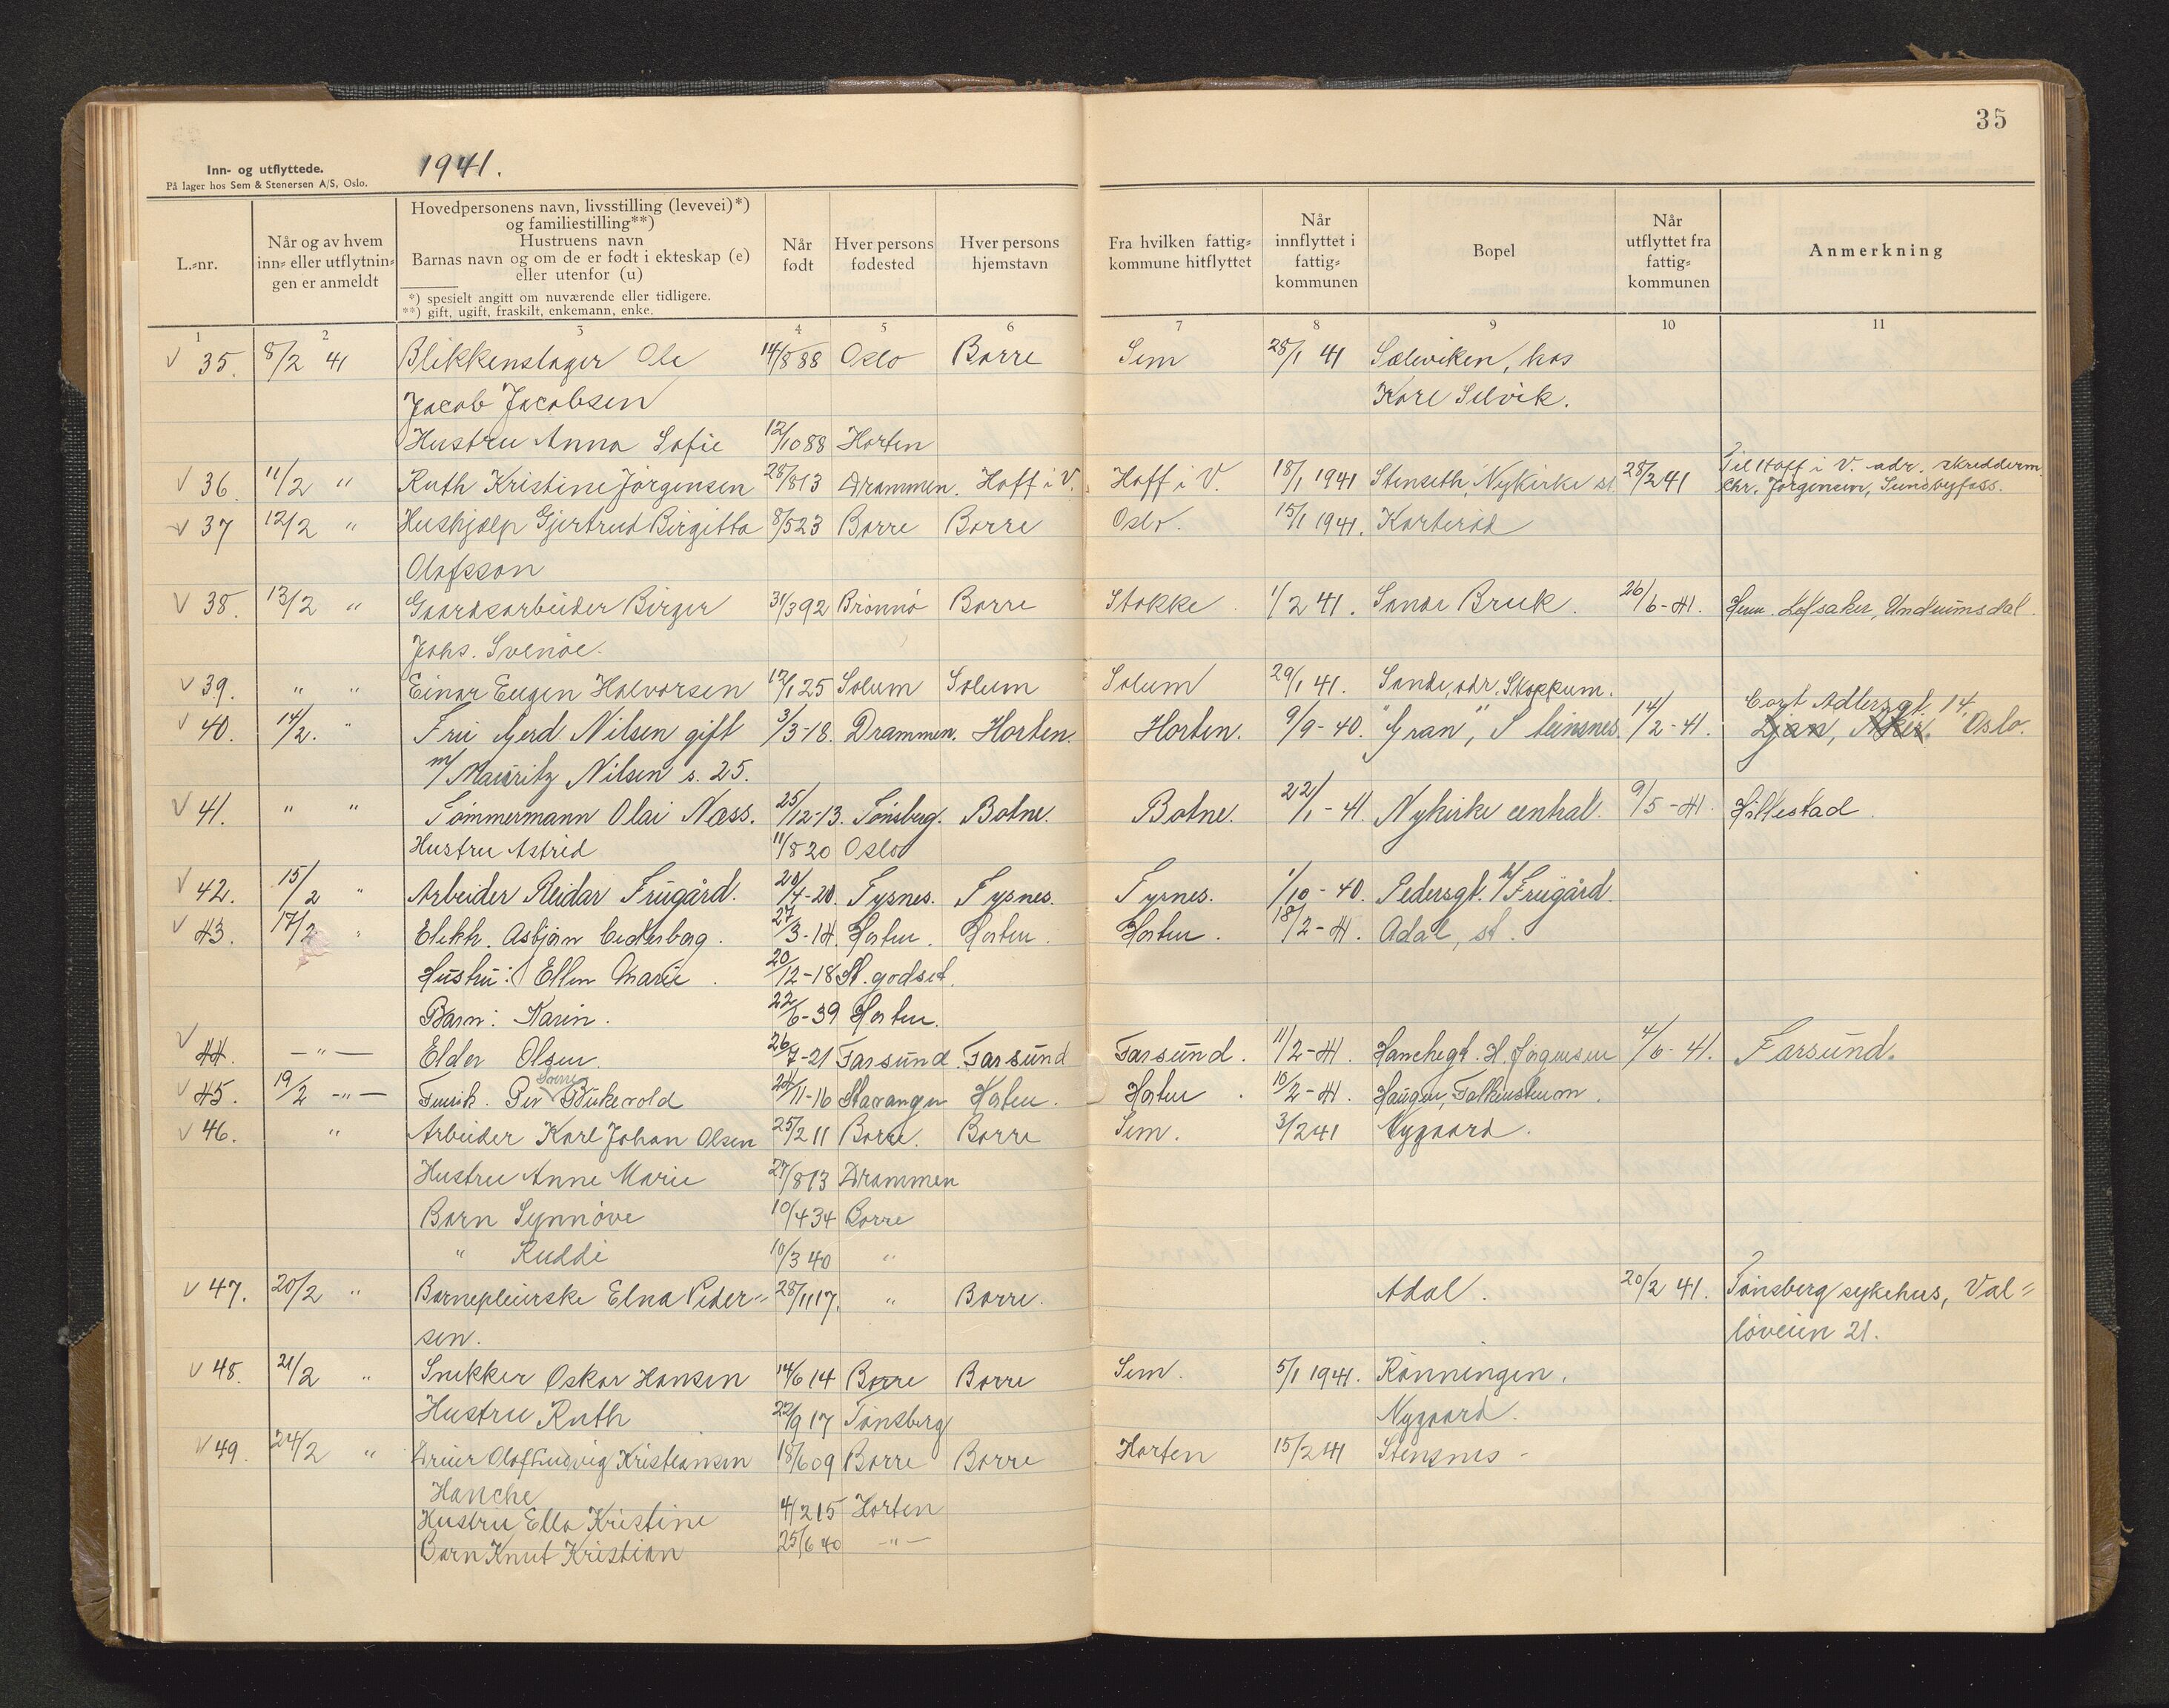 35
Inn- og utflyttede.
På lager hos Sem & Stenersen A/S, Oslo.
1941.
L.-nr.
Når og av hvem inn- eller utflytnin-gen er anmeldt
Hovedpersonens navn, livsstilling (levevei)*)
og familiestilling**)
Hustruens navn
Barnas navn og om de er født i ekteskap (e)
eller utenfor (u)
*) spesielt angitt om nuværende eller tidligere.
**) gift, ugift, fraskilt, enkemann, enke.
Når født
Hver persons fødested
Hver persons hjemstavn
Fra hvilken fattig-kommune hitflyttet
Når innflyttet i fattig-kommunen
Bopel
Når utflyttet fra fattig-kommunen
Anmerkning
1 2 3 4 5 6 7 8 9 10 11
√ 35. 8/2 41 Blikkenslager Ole 14/8 88 Oslo Borre Sem 28/1 41 Sæleviken, hos
Jacob Jacobsen Kare Selvik.
Hustru Anna Sofie 12/10 88 Horten
√ 36. 11/2 " Ruth Kristine Jørgensen 28/8 13 Drammen. Hoff i V. Hoff i V. 18/1 1941 Stenseth, Nykirke st. 28/2 41 Til Hoff i V. adr. skredderm.
Chr. Jørgensen, Sundbyfoss.
√ 37 12/2 " Hushjælp Gjertrud Birgitta 8/5 23 Borre Borre Oslo. 15/1 1941. Karterød
Olofsson
√ 38. 13/2 " Gaardsarbeider Birger 31/3 92 Brønnø Borre Stokke. 1/2 41. Sande Bruk. 26/6-41. Lofsaker, Undrumsdal.
Johs. Svenøe.
√ 39. " " Einar Eugen Halvorsen 12/1 25 Solum Solum Solum 29/1 41. Sande, adr. Skoppum.
√ 40. 14/2. " Fru Gerd Nilsen gift 3/3-18. Drammen. Horten. Horten. 9/9-40. "Gran", Steinsnes. 14/2-41. Cort Adlersgt. 14.
Ljan, Aker. Oslo.
m/ Mauritz Nilsen s. 25.
√ 41. " " Tømmermann Olai Næss. 25/12-13. Tønsberg. Botne. Botne. 22/1-41. Nykirke central. 9/5-41. Hillestad.
Hustru Astrid 11/8 20 Oslo
√ 42. 15/2 " Arbeider Reidar Frugård. 20/4-20. Tysnes. Tysnes. Tysnes. 1/10-40. Pedersgt. h/ Frugård.
√ 43. 17/2 " Elekh. Asbjørn Cederberg. 27/3-14. Horten. Horten. Horten. 18/2-41. Adal, st.
Hustru: Ellen Marie. 20/12-18 St. godset.
Barn: Karin. 22/6-39 Horten.
√ 44. -"- Elder Olsen. 26/7-21 Farsund. Farsund Farsund. 11/2-41. Hanchegt. H. Jørgensen 4/6-41. Farsund.
√ 45. 19/2 -"- Fenrik. Per Bükevold 24/11-16 Stavanger Horten. Horten. 10/2-41. Haugen, Falkensteen.
√ 46. " Arbeider Karl Johan Olsen 25/2 11 Borre. Borre Sem. 3/2 41 Nygaard.
Hustru Anne Marie 27/8 13 Drammen
Barn Synnøve 10/4 34 Borre
" Ruddi 10/3 40 "
√ 47. 20/2 " Barnepleierske Elna Peder- 28/11 17. " Borre. Adal. 20/2 41. Tønsberg sykehus, Val-
sen. løveien 21.
√ 48. 21/2 " Snekker Oskar Hansen 14/6 14 Borre Borre Sem. 5/1 1941. Rønningen,
Hustru Ruth 22/9 17 Tønsberg Nygaard.
√ 49. 24/2 " Dreier Olof Ludvig Kristiansen 18/6 09 Borre Borre Horten 15/2 41 Stensnes -
Hanche
Hustru Ella Kristine 4/2 15 Horten
Barn Knut Kristian 25/6 40 -"-